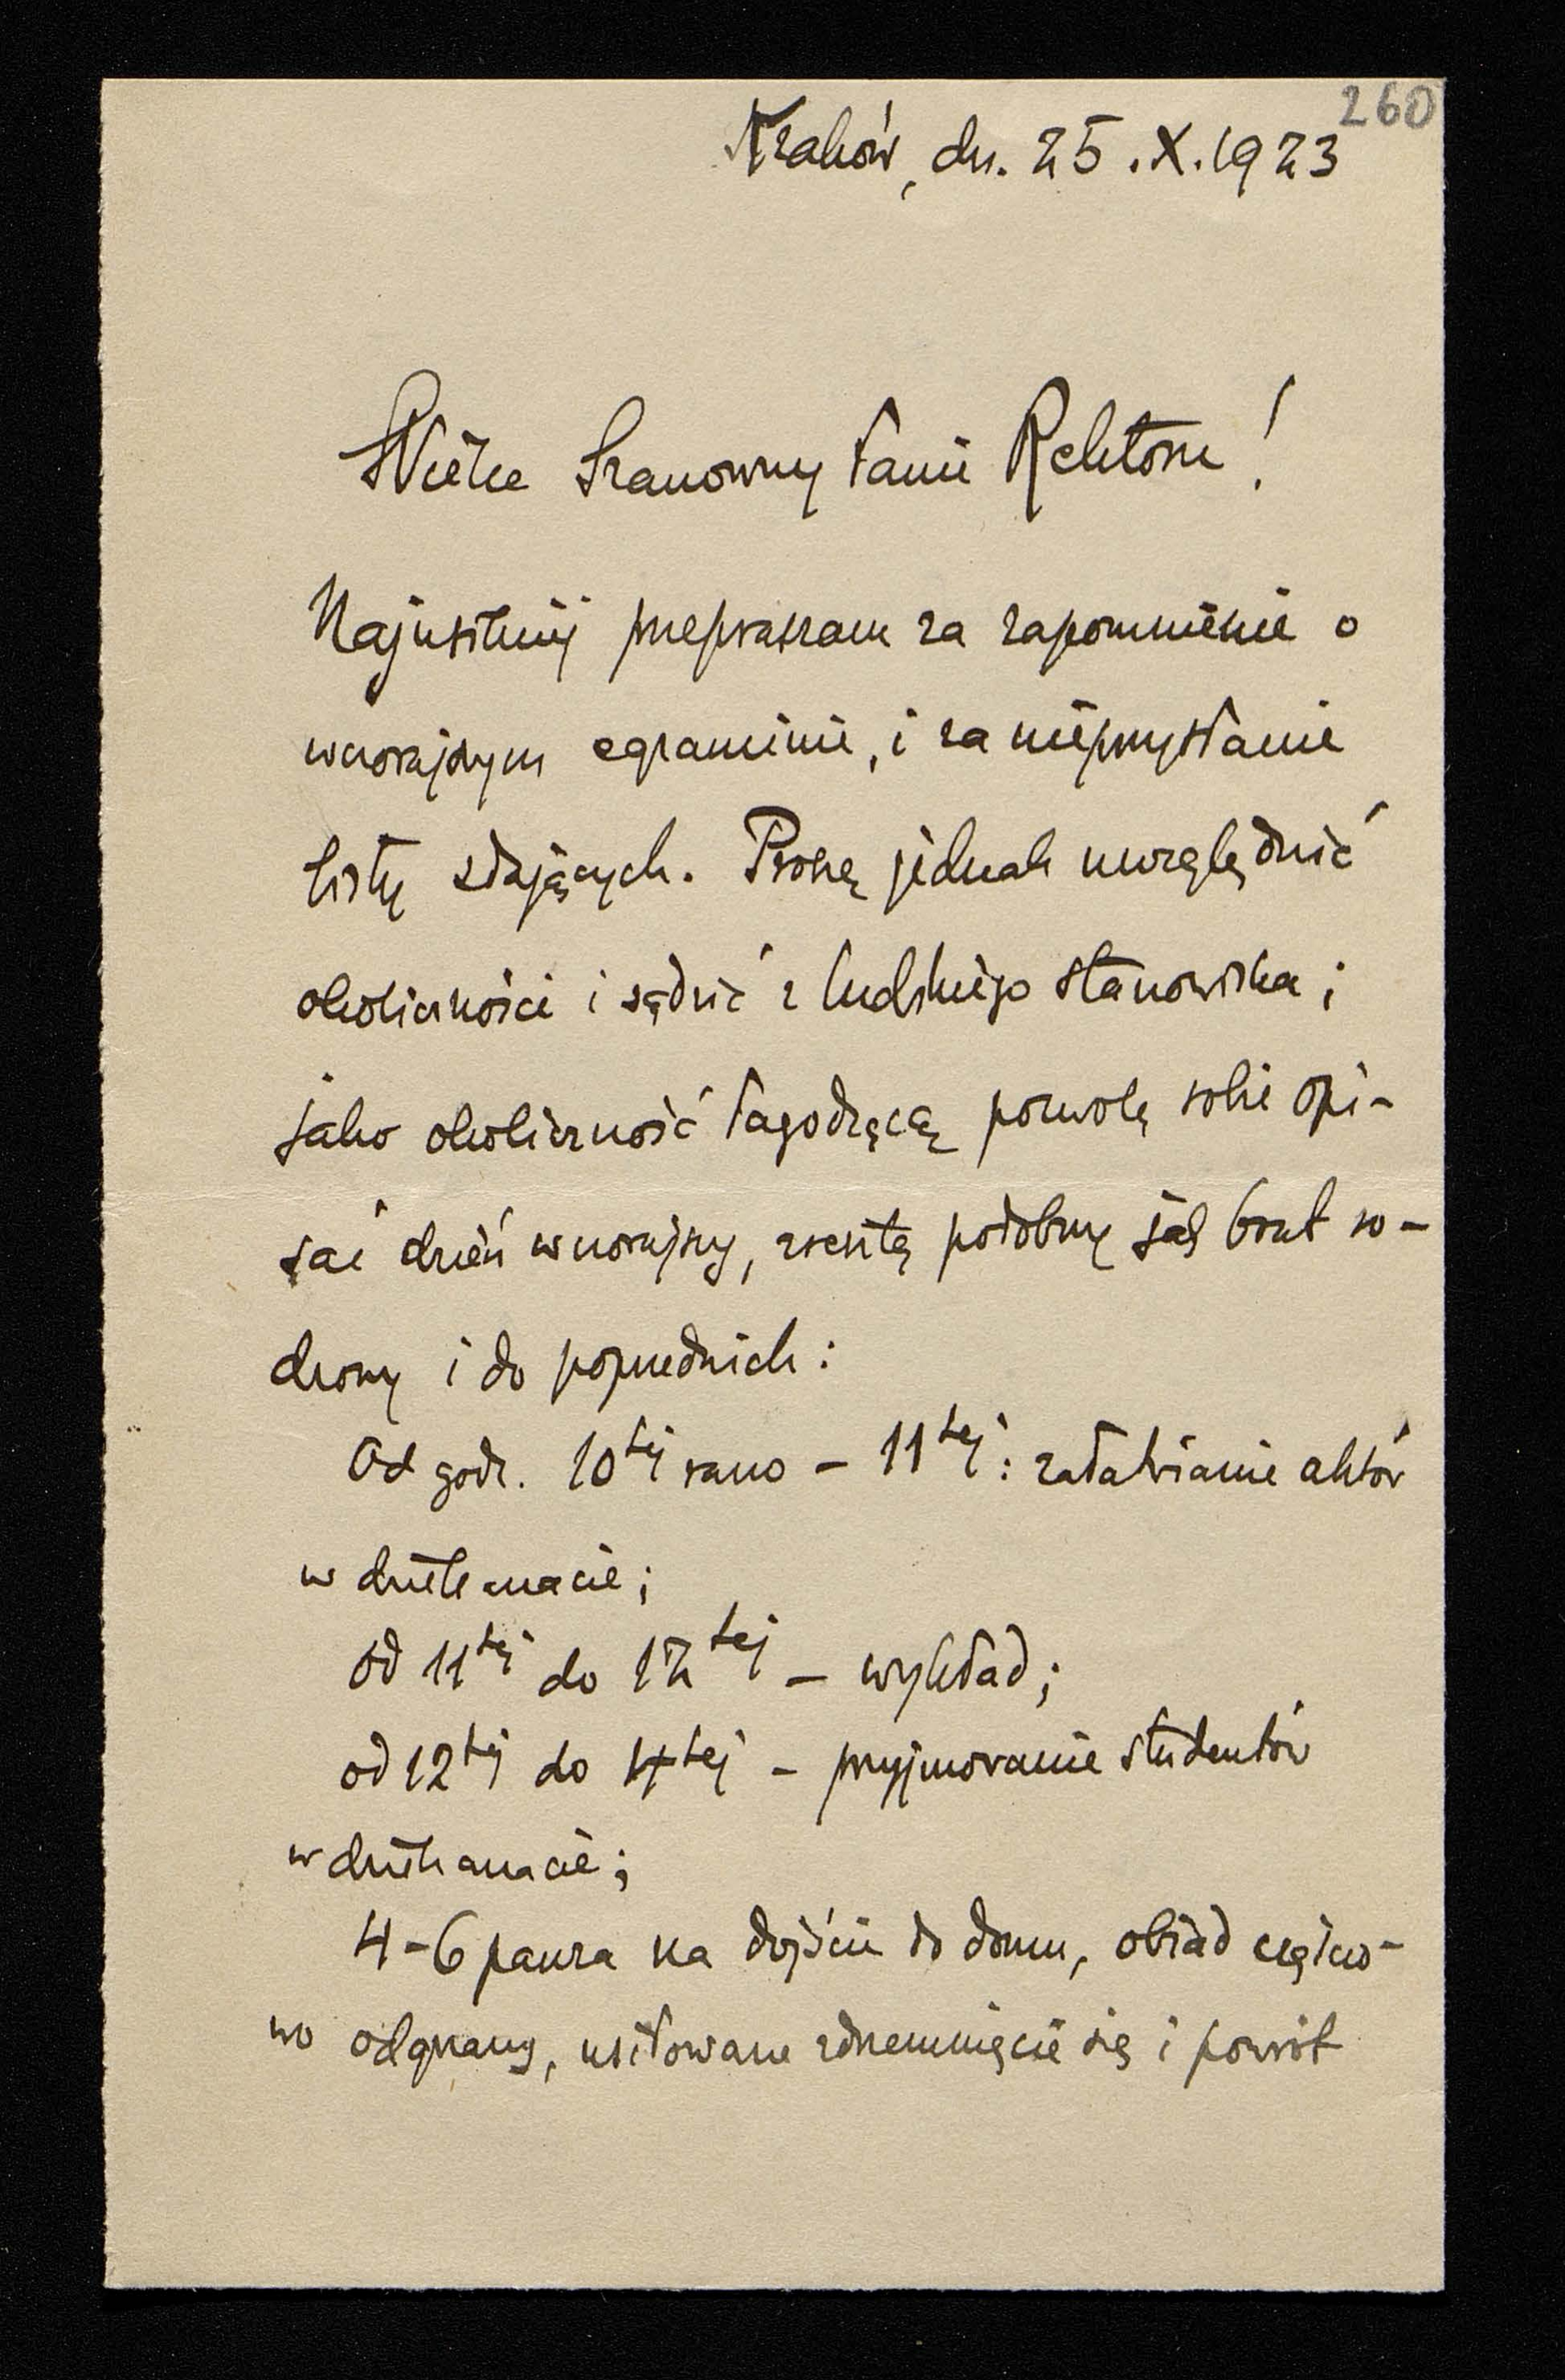 260
Kraków, dn. 25.X.1923
Wielce Szanowny Panie Rektorze!
Najusilniej przepraszam za zapomnienie o
wczorajszym egzaminie, i za nieprzysłanie
listy zdających. Proszę jednak uwzględnić
okoliczności i sądzić z ludzkiego stanowiska;
jako okoliczność łagodzącą pozwolę sobie opi-
sać dzień wczorajszy, zresztą podobny jak brat ro-
dzony i do poprzednich:
Od godz. 10tej rano – 11tej: załatwianie aktów
w dziekanacie;
od 11tej do 12tej – wykład;
od 12tej do 4tej – przyjmowanie studentów
w dziekanacie;
4–6 pauza na dojście do domu, obiad częścio-
wo odgrzany, usiłowane zdrzemnięcie się i powrót